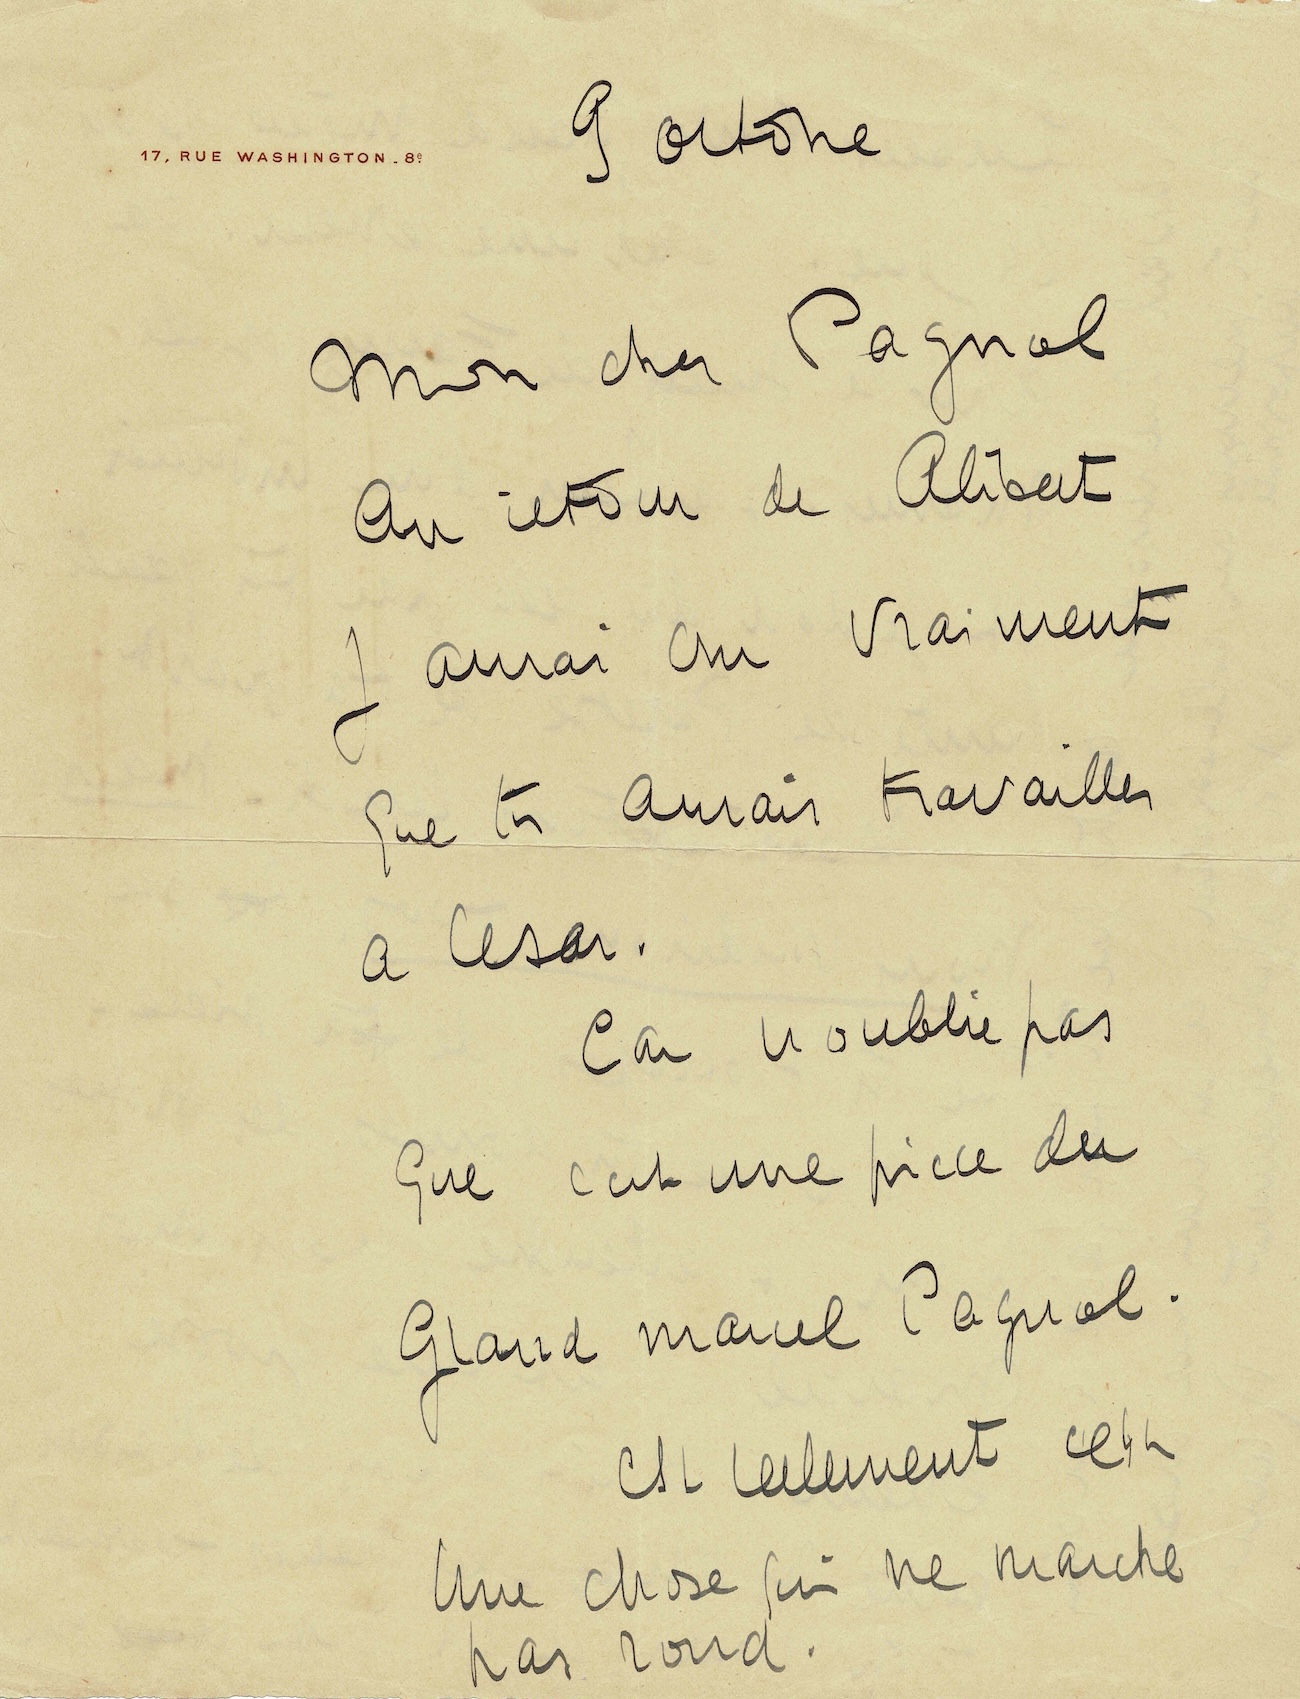 17, RUE WASHINGTON - 8e
9 octobre
Mon cher Pagnol
Au retour de Alibert
J aurai cru vraiment
que tu aurais travailler
a Cesar.
Car n oublie pas
que cest une piece du
Grand marcel Pagnol.
Et reelement cest
Une chose qui ne marche
pas rond.